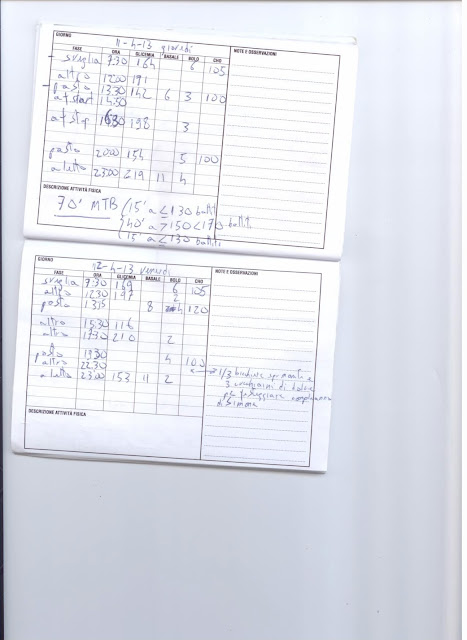 GIORNO 11-4-13 giovedì
FASE ORA GLICEMIA BASALE BOLO CHO NOTE E OSSERVAZIONI
sveglia 7:30 164 6 105
altro 12:00 191
pasto 13:30 142 6 3 100
af start 14:50
af stop 16:30 198 3
pasto 20:00 154 5 100
a letto 23:00 219 11 4
DESCRIZIONE ATTIVITÀ FISICA
70' MTB 15' a ≤ 130 battiti
40' a >150 <170 battiti
15' a ≤ 130 battiti
GIORNO 12-4-13 venerdì
FASE ORA GLICEMIA BASALE BOLO CHO NOTE E OSSERVAZIONI
sveglia 7:30 169 6 105
altro 12:30 197 2
pasto 13:15 8 4 120
altro 15:30 116
altro 17:30 210 2
pasto 19:30 4 100
altro 22:30 → 1/3 bicchiere spumante e
a letto 23:00 153 4 2 3 cucchiaini di
per festeggiare compleanno
di Simone
DESCRIZIONE ATTIVITÀ FISICA